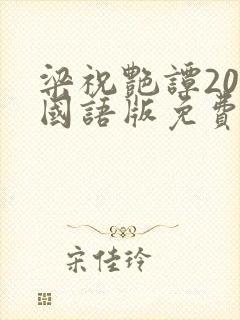 梁祝艷譚20
國語版免費
宋佳玲